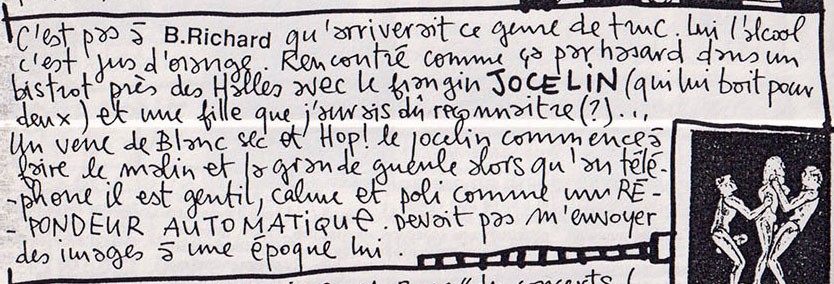 C'est pas à B.Richard qu'arriverait ce genre de truc. Lui l'alcool
c'est jus d'orange. Rencontré comme ça par hasard dans un
bistrot près des Halles avec le frangin JOCELIN (qui lui boit pour
deux) et une fille que j'aurais dû reconnaitre(?)...
Un verre de Blanc sec et Hop! le Jocelin commence à
faire le malin et la grande gueule alors qu'au télé-
-phone il est gentil, calme et poli comme un RÉ-
-PONDEUR AUTOMATIQUE. Devait pas m'envoyer
des images à une époque lui.
concerts (